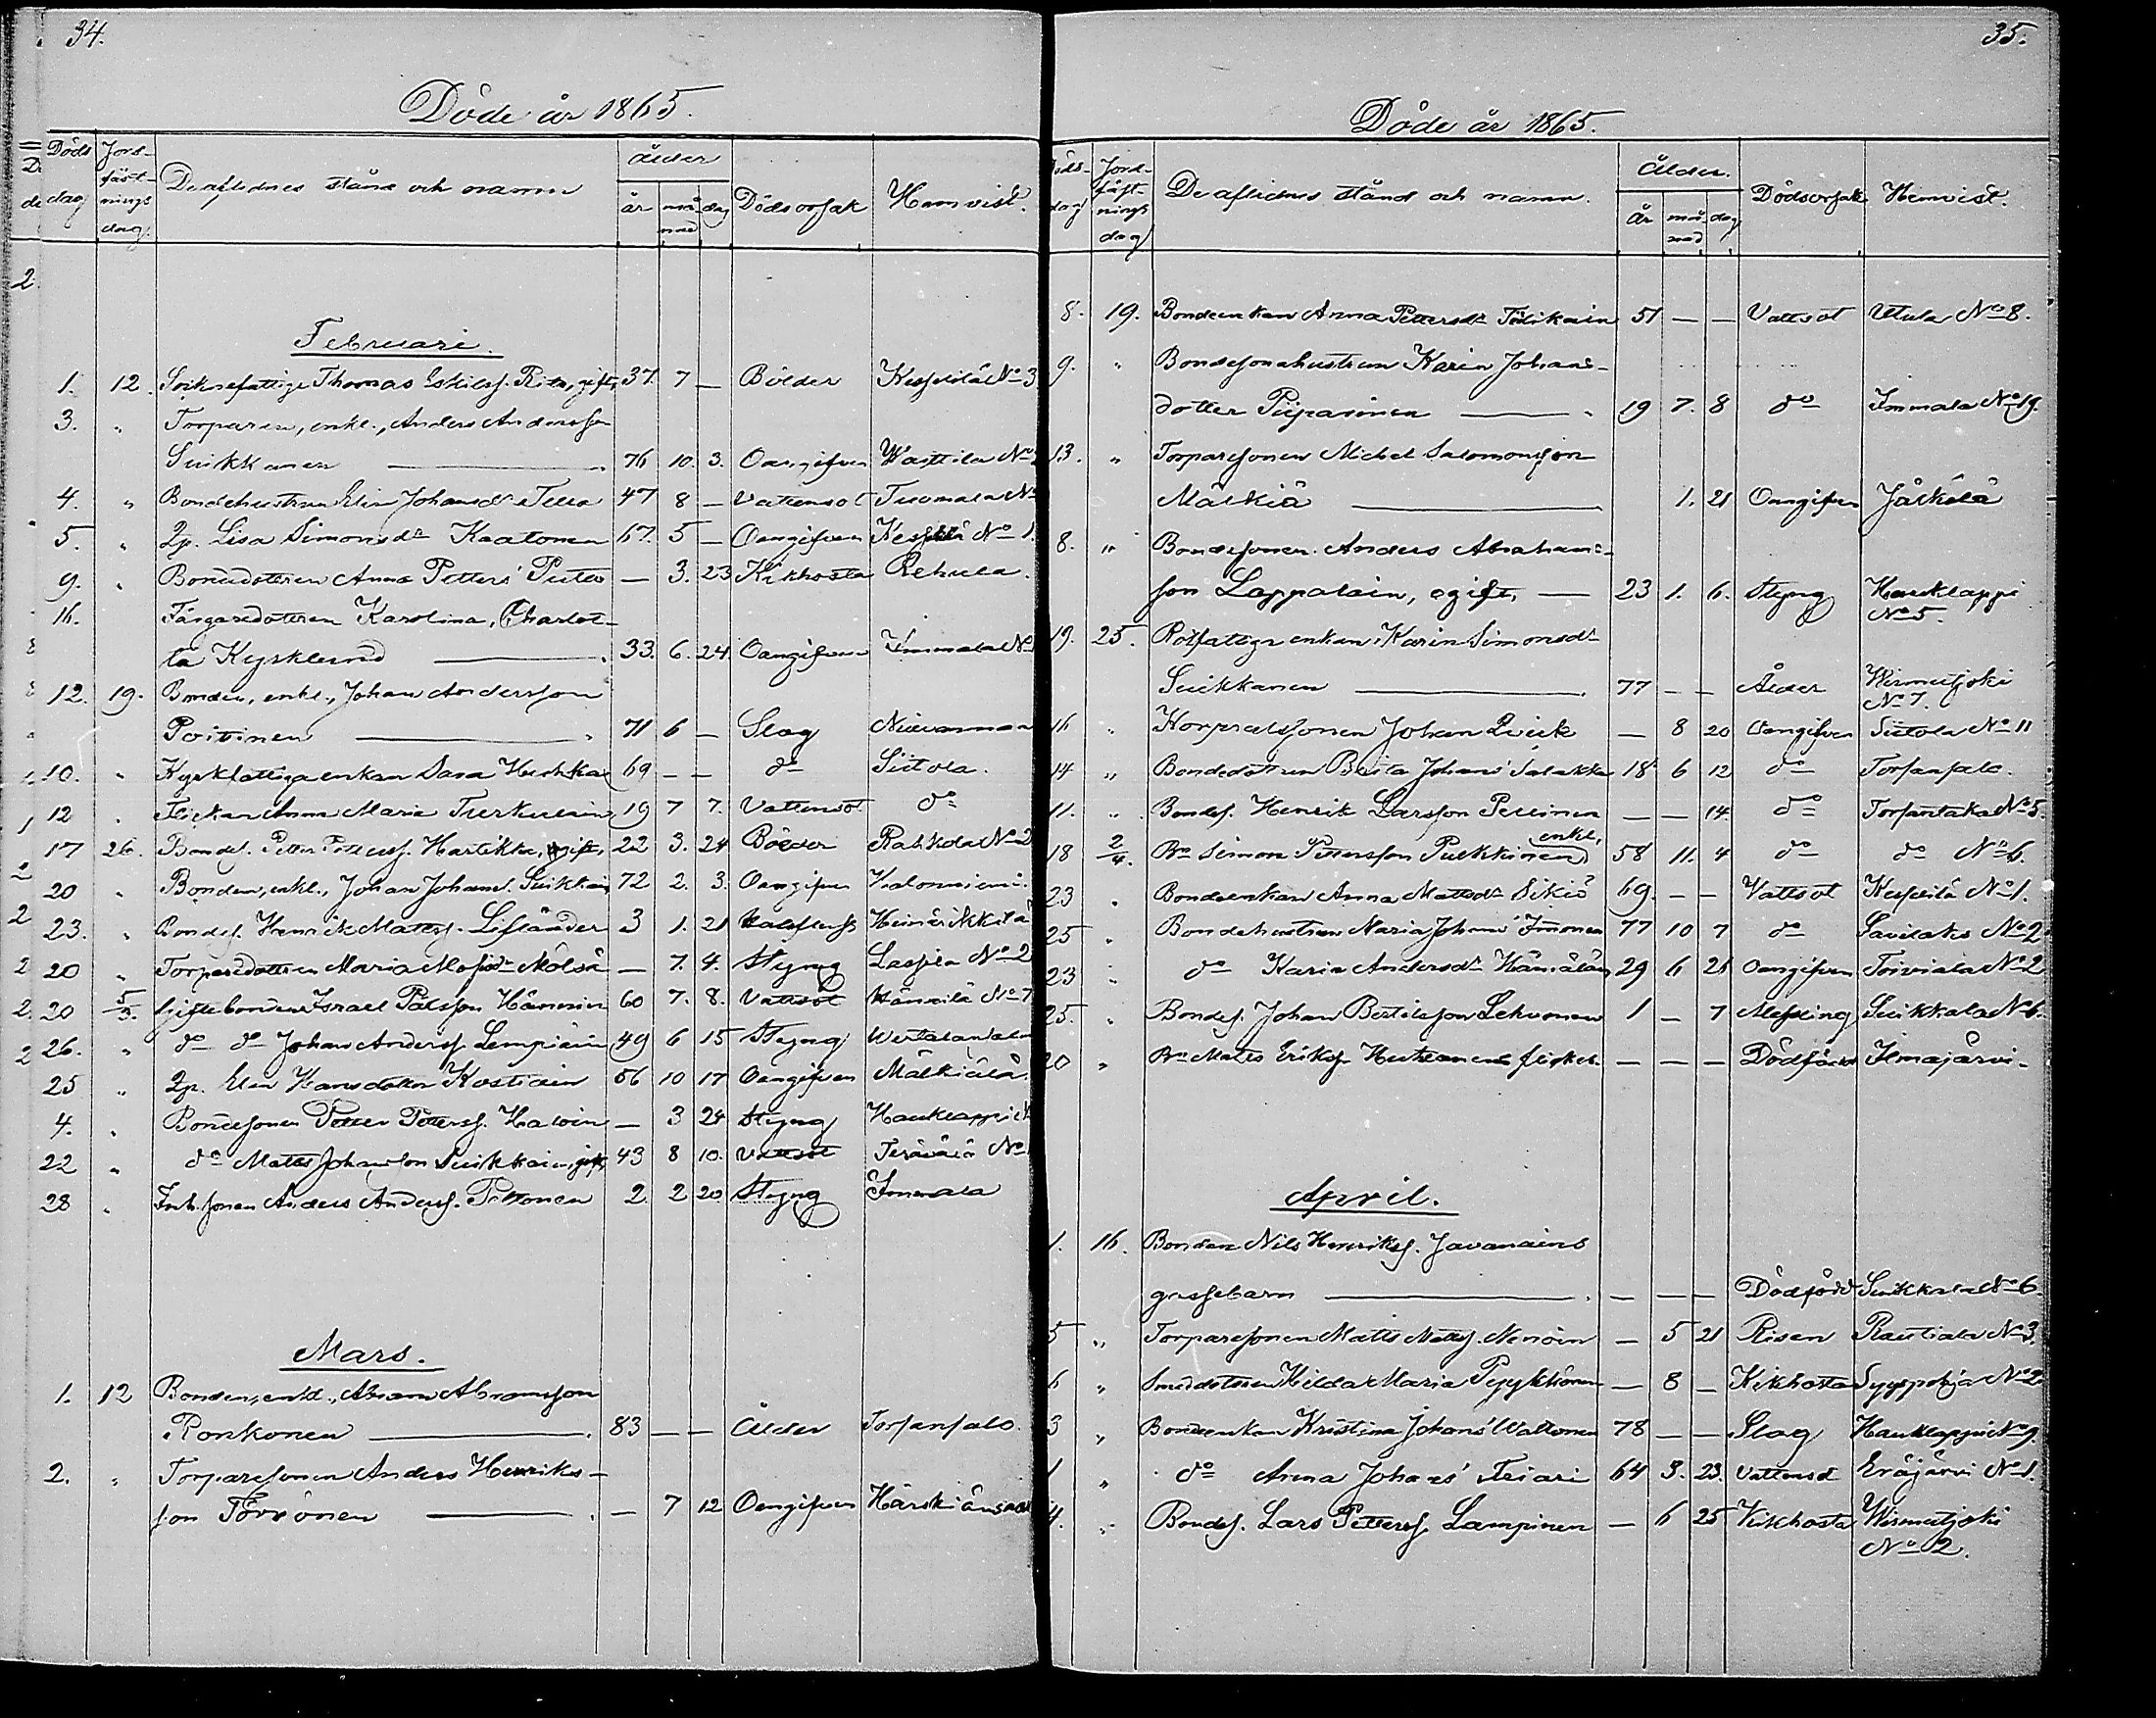 34.
Döde år 1865.
Döds dag Jordfästnings dag De aflidnes stånd och namn ålder år månad dag Dödsorsak Hemvist.
Februari.
1. 12. Socknefattige Thomas Eskilss. Rita, gift, 37. 7 — Bölder Keskilä No 3
3. " Torparen, enkl., Anders Andersson
Suikkanen — 76 10. 3. Oangifven Wasttila No
4. " Bondehustrun Elin Johansdr Tella 47 8 — Vattensot Tuomala No
5. " Lisa Simonsdr Kaatonen 67. 5 — Oangifven No 1.
9. " Bondedottren Anna Petters' — 3. 23 Kikhosta Rehula.
16. Färgaredottren Karolina, Charlot-
ta Kyrklund — 33. 6. 24 Oangifven Immala No
12. 19. Bonden, enkl., Johan Andersson
Poitinen — 71 6 — Slag Niinranmaa
10. " Kyrkfattiga enkan Sara 69 — — do Siitola.
12 " Flickan Anna Maria Turkulain 19 7 7. Vattensot do
17 26. Bondes. Petter Petterss. Hartikka, 22 3. 24 Bölder Ratikola No 2
20 " Bonden, enkl., Johan Johanss. Suikkain 72 2. 3. Oangifven Walonniemi.
23. " Bondes. Henrik Matss. Lifländer 3 1. 21 Heinärikkilä
20 " Torparedottren Maria Molsä — 7. 4. Styng Laspla No 2
20 5/3. gifte bonden Israel Pålsson Hämmin 60 7. 8. Vattsot No 7
26. " do do Johan Anderss. Lempiäin 49 6 15 Styng
25 " Elin Hansdotter Kostiain 56 10 17 Oangifven Mälkiälä
4. " Bondesonen Petter Petterss. — 3 24 Styng Hauklappi
22 " do Matts Johansson Suikkain, gift, 43 8 10. Vattsot No
28 " Anders Anderss. Pettonen 2 2 20 Styng Immala
Mars.
1. 12 Bonden, enkl., Abram Abramsson
Ronkonen — 83 — — Ålder Torsansalo.
2. " Torparesonen Anders Henriks-
son Törrönen — — 7 12 Oangifven
35.
Döde år 1865.
Döds- dag Jordfästnings dag De aflidnes stånd och namn. Ålder. år månad dag Dödsorsak Hemvist.
8. 19. Bondeenkan Anna Pettersdr 51 — — Vattsot Utula No 8.
9. " Bondesonahustrun Karin Johans-
dotter Piiparinen — 19 7. 8 do Immala No 19.
13. " Torparesonen Michel Salomonsson
Mälkiä — 1. 21 Oangifven Jälkölä
8. " Bondesonen Anders Abrahams-
son Lappalain, ogift, — 23 1. 6. Styng Hauklappi
No 5.
19. 25. Rotfattiga enkan Karin Simonsdr
Suikkanen — 77 — — Ålder Wirmutjoki
No 7.
16 " Korpralssonen Johan Quick — 8 20 Oangifven Siitola No 11
14 " Bondedottren Brita Johans' Salakka 18 6 12 do Torsansalo.
11. " Bondes. Henrik Larsson Pellinen — — 14 do Torsantaka No 5.
18 2/4. Bn Simon Pettersson Pulkkinen enkl, 58 11. 4 do do No 6.
23 " Bondeenkan Anna Mattsdr Sikiö 69. — — Vattsot No 1.
25 " Bondehustrun Maria Johans' Immonen 77 10 7 do Savilaks No 2
23 " do Karin Andersdr 29 6 21 Oangifven Toiviala No 2
25. " Bondes. Johan Bertilsson Lehvonen 1 — 7 Messling Suikkala No 6.
20 " Bn Matts Erikss. flickeb. — — — Dödfödd Ilmajärvi.
April.
1. 16. Bonden Nils Henrikss. Javanains
gossebarn — — — — Dödfödd Suikkala No 6
5 " Torparesonen Matts Mattss. — 5 21 Risen Rautiala No 3.
6 " Smeddottren Hilda Maria Pyykkönen — 8 — Kikhosta Syyspohja No 2
3 " Bondeenkan Kristina Johans' Waltonen 78 — — Slag Hauklappi No 9.
1 " do Anna Johans' 64 3. 23. Vattensot Eräjärvi No 1.
4. " Bondes. Lars Petterss. Lampinen — 6 25 Kikhosta Wirmutjoki
No 2.